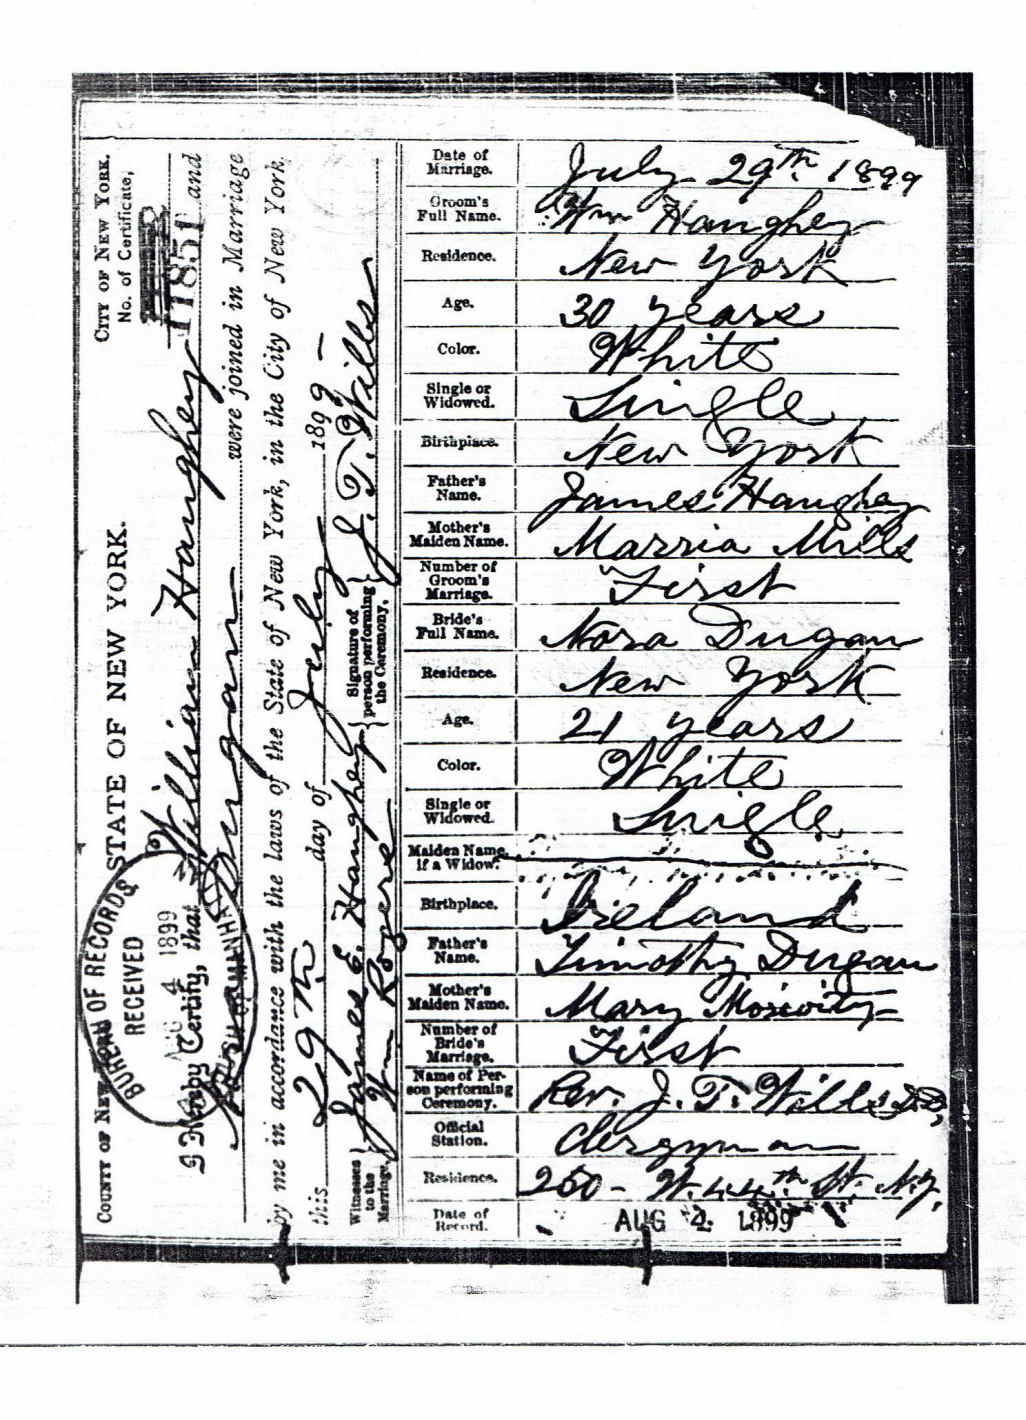 COUNTY OF NEW YORK. STATE OF NEW YORK. CITY OF NEW YORK.
No. of Certificate,
11851
BUREAU OF RECORDS
RECEIVED
AUG 4 1899
I Hereby Certify, that William Haughey and
Nora Dugan were joined in Marriage
by me in accordance with the laws of the State of New York, in the City of New York
this 29th day of July 1899
Witnesses to the Marriage, James E. Haughey
Wm Rogers
Signature of person performing the Ceremony, J. T. Wills
Date of Marriage. July 29th 1899
Groom's Full Name. Wm Haughey
Residence. New York
Age. 30 years
Color. White
Single or Widowed. Single
Birthplace. New York
Father's Name. James Haughey
Mother's Maiden Name. Marria Mills
Number of Groom's Marriage. First
Bride's Full Name. Nora Dugan
Residence. New York
Age. 21 years
Color. White
Single or Widowed. Single
Maiden Name, if a Widow.
Birthplace. Ireland
Father's Name. Timothy Dugan
Mother's Maiden Name. Mary
Number of Bride's Marriage. First
Name of Person performing Ceremony. Rev. J. T. Wills D.D,
Official Station. Clergyman
Residence. 250 - W. 44th St. N.Y.
Date of Record. AUG 4 1899